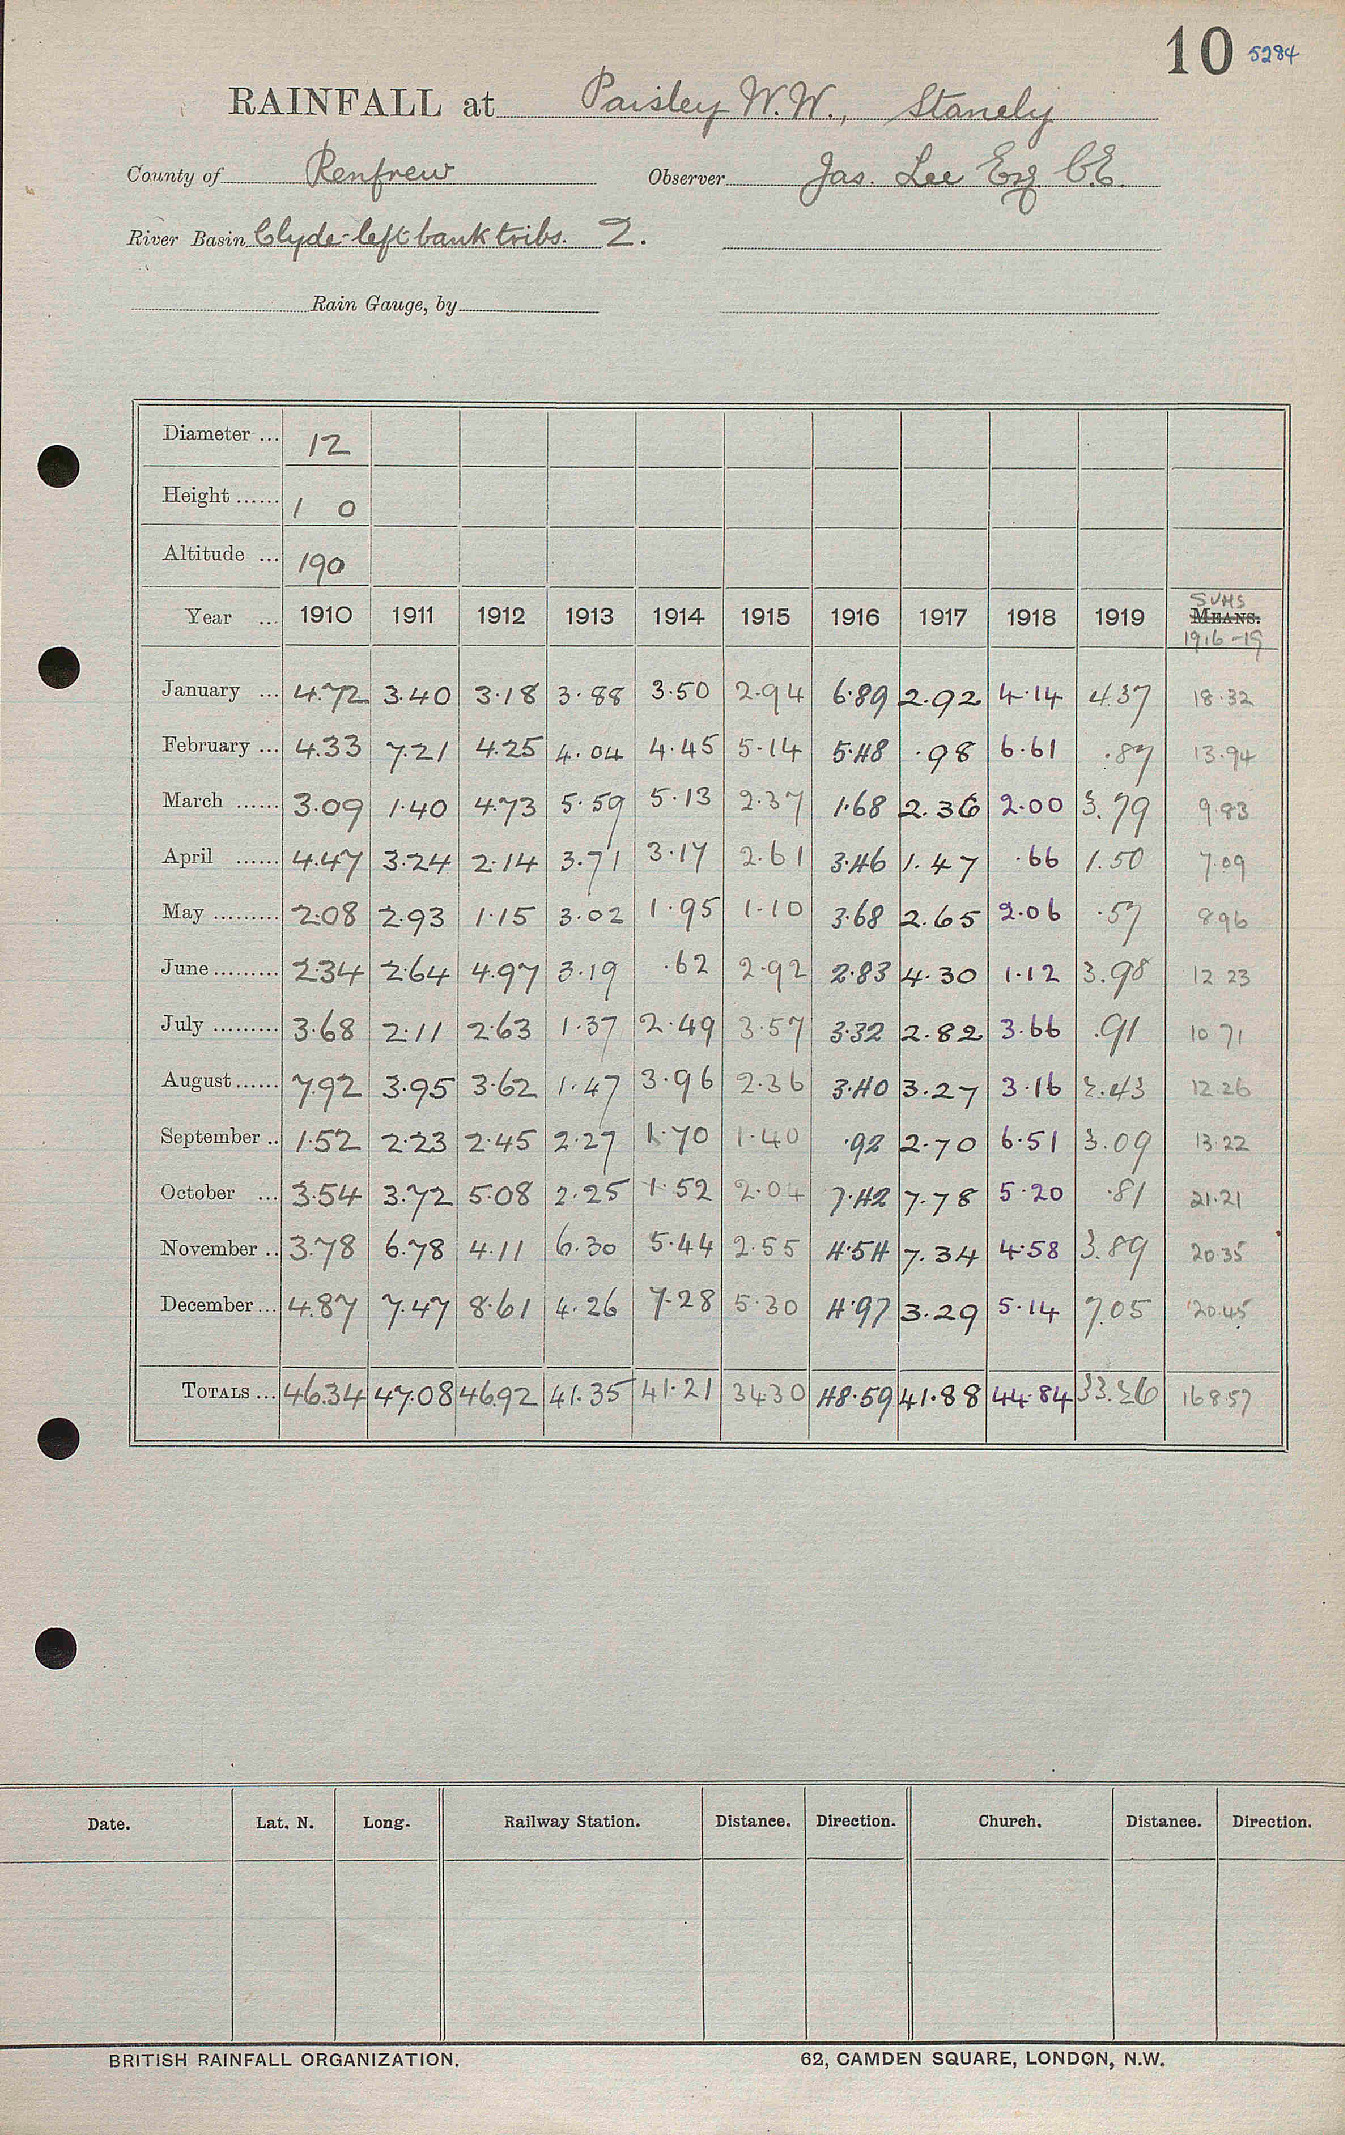 10 5284
RAINFALL at Paisley W.W., Stanely
County of Renfrew Observer Jas. Lee Esq C.E.
River Basin Clyde-left bank tribs. 2.
Rain Gauge, by
Diameter ... 12
Height ...... 1 0
Altitude ... 190
Year ... 1910 1911 1912 1913 1914 1915 1916 1917 1918 1919 SUMS MEANS. 1916-19
January ... 4.72 3.40 3.18 3.88 3.50 2.94 6.89 2.92 4.14 4.37 18.32
February ... 4.33 7.21 4.25 4.04 4.45 5.14 5.48 .98 6.61 .87 13.94
March ...... 3.09 1.40 4.73 5.59 5.13 2.37 1.68 2.36 2.00 3.79 9.83
April ...... 4.47 3.24 2.14 3.71 3.17 2.61 3.46 1.47 .66 1.50 7.09
May ......... 2.08 2.93 1.15 3.02 1.95 1.10 3.68 2.65 2.06 .57 8.96
June ......... 2.34 2.64 4.97 3.19 .62 2.92 2.83 4.30 1.12 3.98 12 23
July ......... 3.68 2.11 2.63 1.37 2.49 3.57 3.32 2.82 3.66 .91 10 71
August ...... 7.92 3.95 3.62 1.47 3.96 2.36 3.40 3.27 3.16 2.43 12.26
September .. 1.52 2.23 2.45 2.27 1.70 1.40 .92 2.70 6.51 3.09 13.22
October ... 3.54 3.72 5.08 2.25 1.52 2.04 7.42 7.78 5.20 .81 21.21
November .. 3.78 6.78 4.11 6.30 5.44 2.55 4.54 7.34 4.58 3.89 20.35
December ... 4.87 7.47 8.61 4.26 7.28 5.30 4.97 3.29 5.14 7.05 20.45
TOTALS ... 46.34 47.08 46.92 41.35 41.21 34.30 48.59 41.88 44.84 33.26 168.57
Date. Lat. N. Long. Railway Station. Distance. Direction. Church. Distance. Direction.
BRITISH RAINFALL ORGANIZATION. 62, CAMDEN SQUARE, LONDON, N.W.